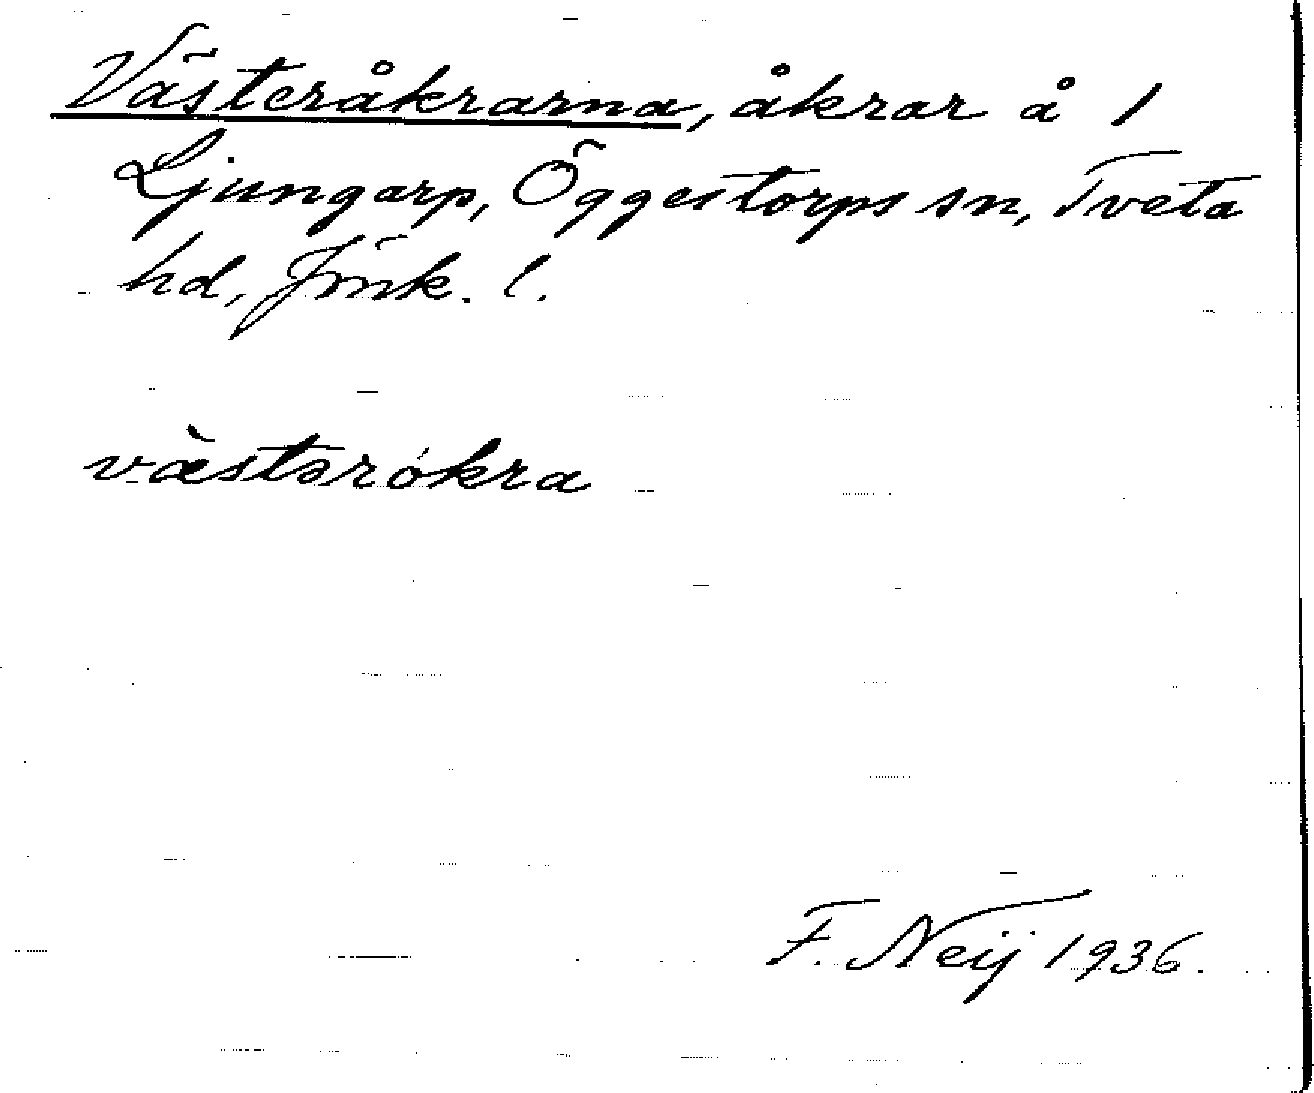 Västeråkrarna, åkrar å 1
Ljungarp, Öggestorps sn, Tveta
hd, Jönk. l.
væ̀stərókra
F. Neij 1936.